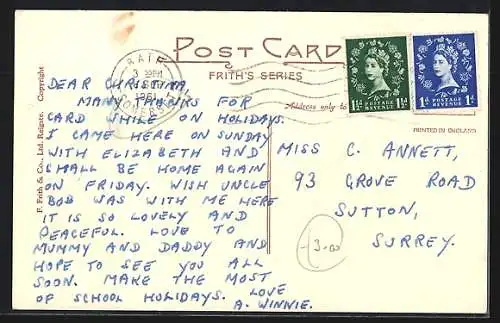 POST CARD
FRITH'S SERIES
F. Frith & Co., Ltd., Reigate. Copyright
Address only to
PRINTED IN ENGLAND
BATH
1961
1½D POSTAGE REVENUE 1½D
1D POSTAGE REVENUE 1D
DEAR CHRISTINA
MANY THANKS FOR
CARD WHILE ON HOLIDAYS.
I CAME HERE ON SUNDAY
WITH ELIZABETH AND
SHALL BE HOME AGAIN
ON FRIDAY. WISH UNCLE
BOB WAS WITH ME HERE
IT IS SO LOVELY AND
PEACEFUL. LOVE TO
MUMMY AND DADDY AND
HOPE TO SEE YOU ALL
SOON. MAKE THE MOST
OF SCHOOL HOLIDAYS. LOVE
A. WINNIE.
MISS C. ANNETT,
93 GROVE ROAD
SUTTON,
SURREY.
3.00